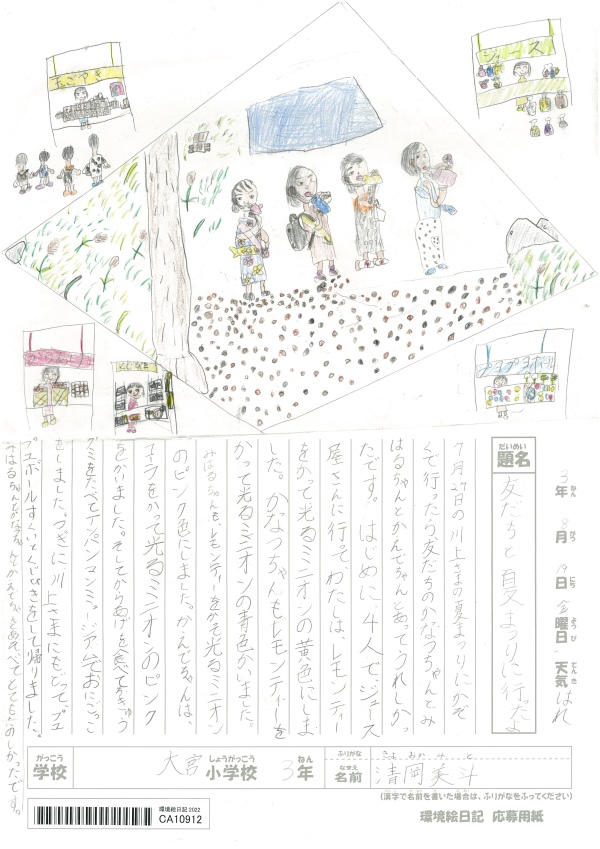 たこやき
ジュース
くじびき
だいめい
題名
友だちと夏まつりに行ったよ
3年 8月 19日 金曜日 天気 はれ
ねん がつ にち ようび てんき
7月27日の川上さまの夏まつりにかぞ
くで行ったら友だちのかなつちゃんとみ
はるちゃんとかんでちゃんとあってうれしかっ
たです。はじめに、4人で、ジュース
屋さんに行って、わたしは、レモンティー
をかって光るミニオンの黄色にしま
した。かなつちゃんもレモンティーを
かって光るミニオンの青色かいました。
みはるちゃんも、レモンティーをかって光るミニオン
のピンク色にしました。かんでちゃんは、
コーラをかって光るミニオンのピンク
をかいました。そしてからあげを食べて
グミをたべてアンパンマンミュージアムでおにごっこ
をしました。つぎに川上さまにもどってプユ
プユボールすくいとくじびきをして帰りました。
みはるちゃんとかなつちゃんとかんでちゃんとあそべてとてもたのしかったです。
がっこう しょうがっこう ねん
学校 大宮 小学校 3年
ふりがな きよ おか み と
なまえ
名前 清岡美斗
(漢字で名前を書いた場合は、ふりがなをふってください)
環境絵日記 2022
CA10912
環境絵日記 応募用紙